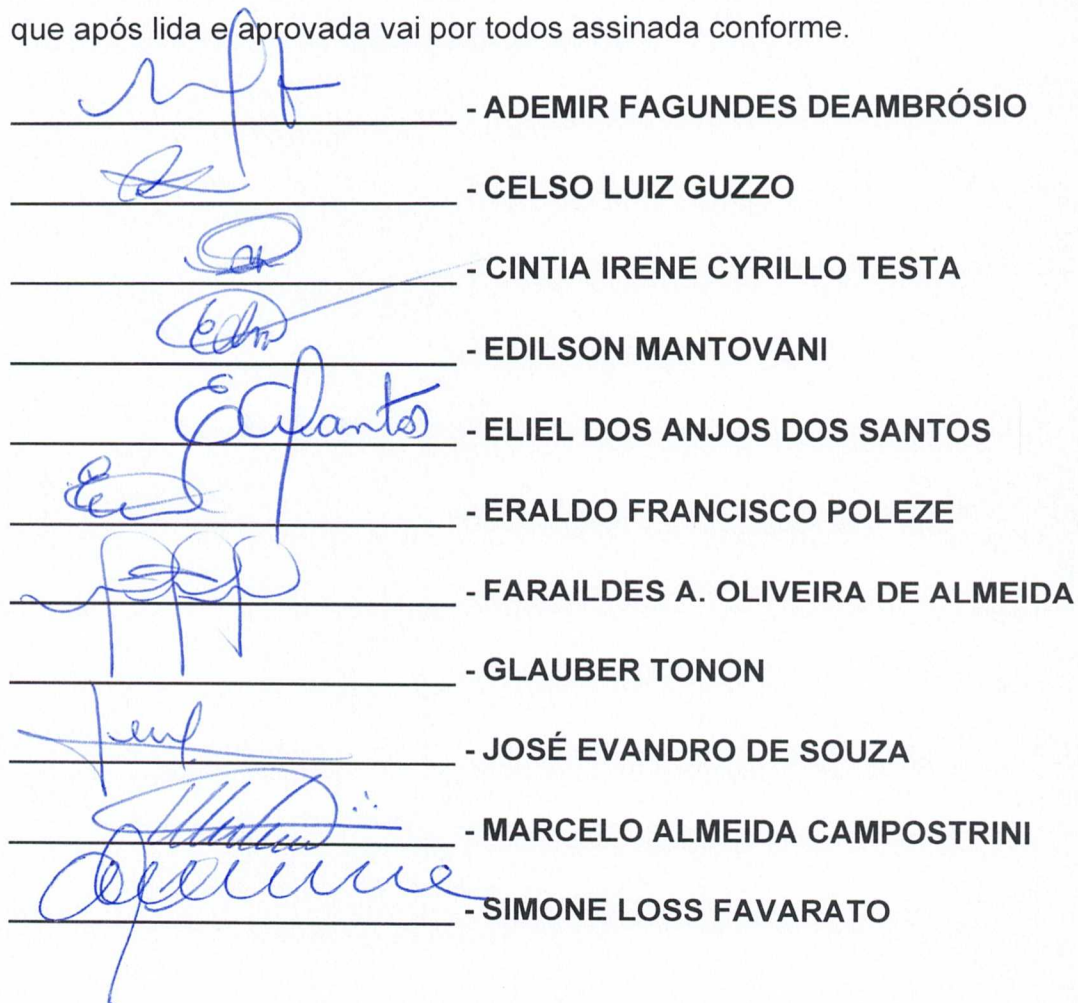 que após lida e aprovada vai por todos assinada conforme.
- ADEMIR FAGUNDES DEAMBRÓSIO
- CELSO LUIZ GUZZO
- CINTIA IRENE CYRILLO TESTA
- EDILSON MANTOVANI
ECSantos - ELIEL DOS ANJOS DOS SANTOS
- ERALDO FRANCISCO POLEZE
- FARAILDES A. OLIVEIRA DE ALMEIDA
- GLAUBER TONON
- JOSÉ EVANDRO DE SOUZA
- MARCELO ALMEIDA CAMPOSTRINI
- SIMONE LOSS FAVARATO